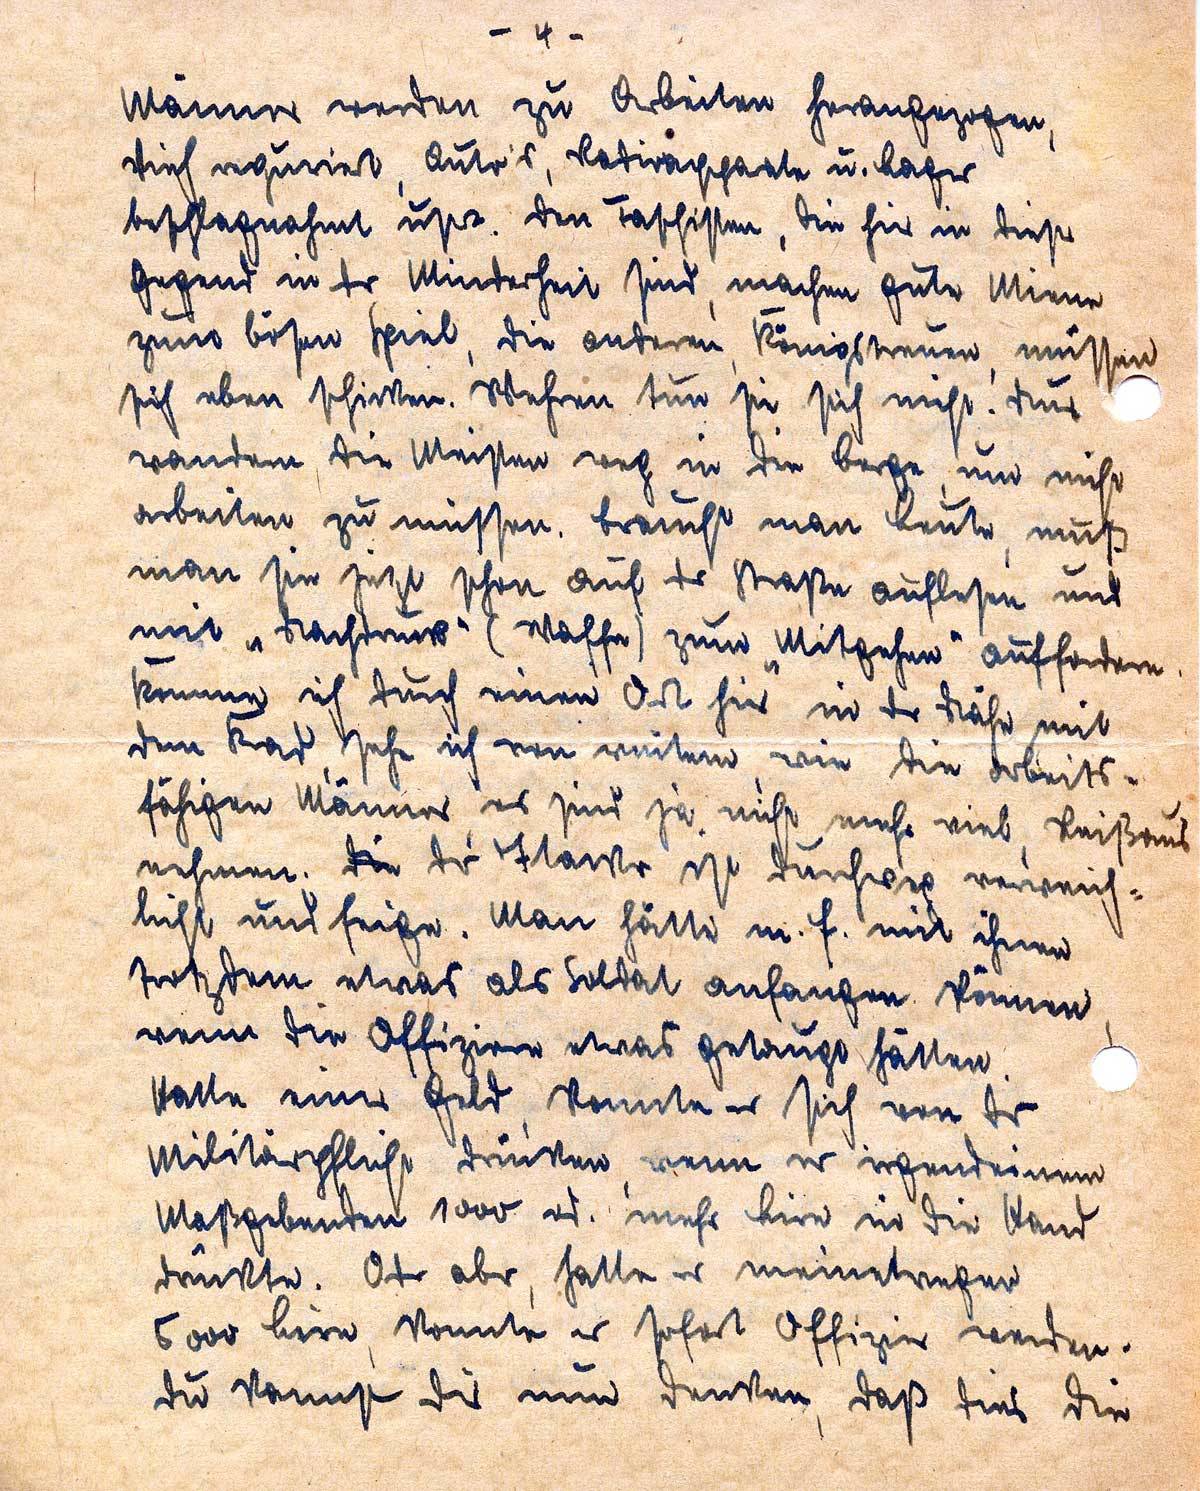 - 4 -
Männer werden zu Arbeiten herangezogen,
Vieh requriert, Auto's, Radioapparate u. Lager
beschlagnahmt usw. Den Faschisten, die hier in dieser
Gegend in der Minderheit sind, machen gute Miene
zum bösen Spiel, die anderen, Königstreuen, müssen
sich eben schicken. Wehren tun sie sich nicht. Nur
wandern die Meisten weg in die Berge, um nicht
arbeiten zu müssen. Braucht man Leute, muß
man sie jetzt schon auf der Straße auflesen und
mit „Nachdruck" (Waffe) zum „Mitgehen" auffordern.
Komme ich durch einen Ort hier in der Nähe mit
dem Rad, sehe ich von weitem, wie die arbeits-
fähigen Männer, es sind ja nicht mehr viel, Reißaus
nehmen. Die der ist durchweg verweich-
licht und feige. Man hätte m. E. mit ihnen
trotzdem etwas als Soldat anfangen können,
wenn die Offiziere etwas getaugt hätten.
Hatte einer Geld, konnte er sich von der
Militärpflicht drücken, wenn er irgendeinem
Maßgebenden 1000 od. mehr Lire in die Hand
drückte. Oder aber, hatte er meinetwegen
5000 Lire, konnte er sofort Offizier werden.
Du kannst Dir nun denken, daß dies die